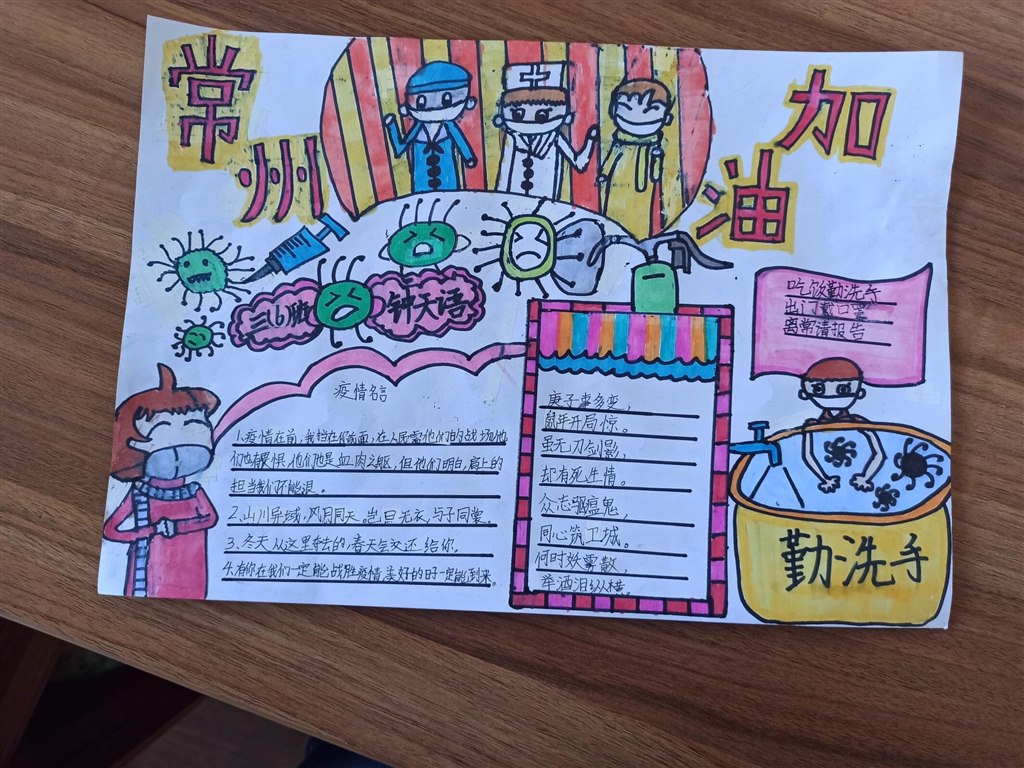 常州
加油
三(6)班
钟天语
吃饭勤洗手
出门戴口罩
异常请报告
疫情名言
1.疫情在前,我挡在你前面,在人民需他们的战场他
们也有畏惧,他们他是血肉之躯,但他们明白,肩上的
担当我们不能退。
2.山川异域,风月同天。岂曰无衣,与子同裳。
3.冬天从这里夺去的,春天会交还给你。
4.有你在我们一定能战胜疫情美好的时一定能到来。
庚子事多变,
鼠年开局惊。
虽无刀剑影,
却有死生情。
众志驱瘟鬼,
同心筑卫城。
何时妖雾散,
举酒泪纵横。
勤洗手